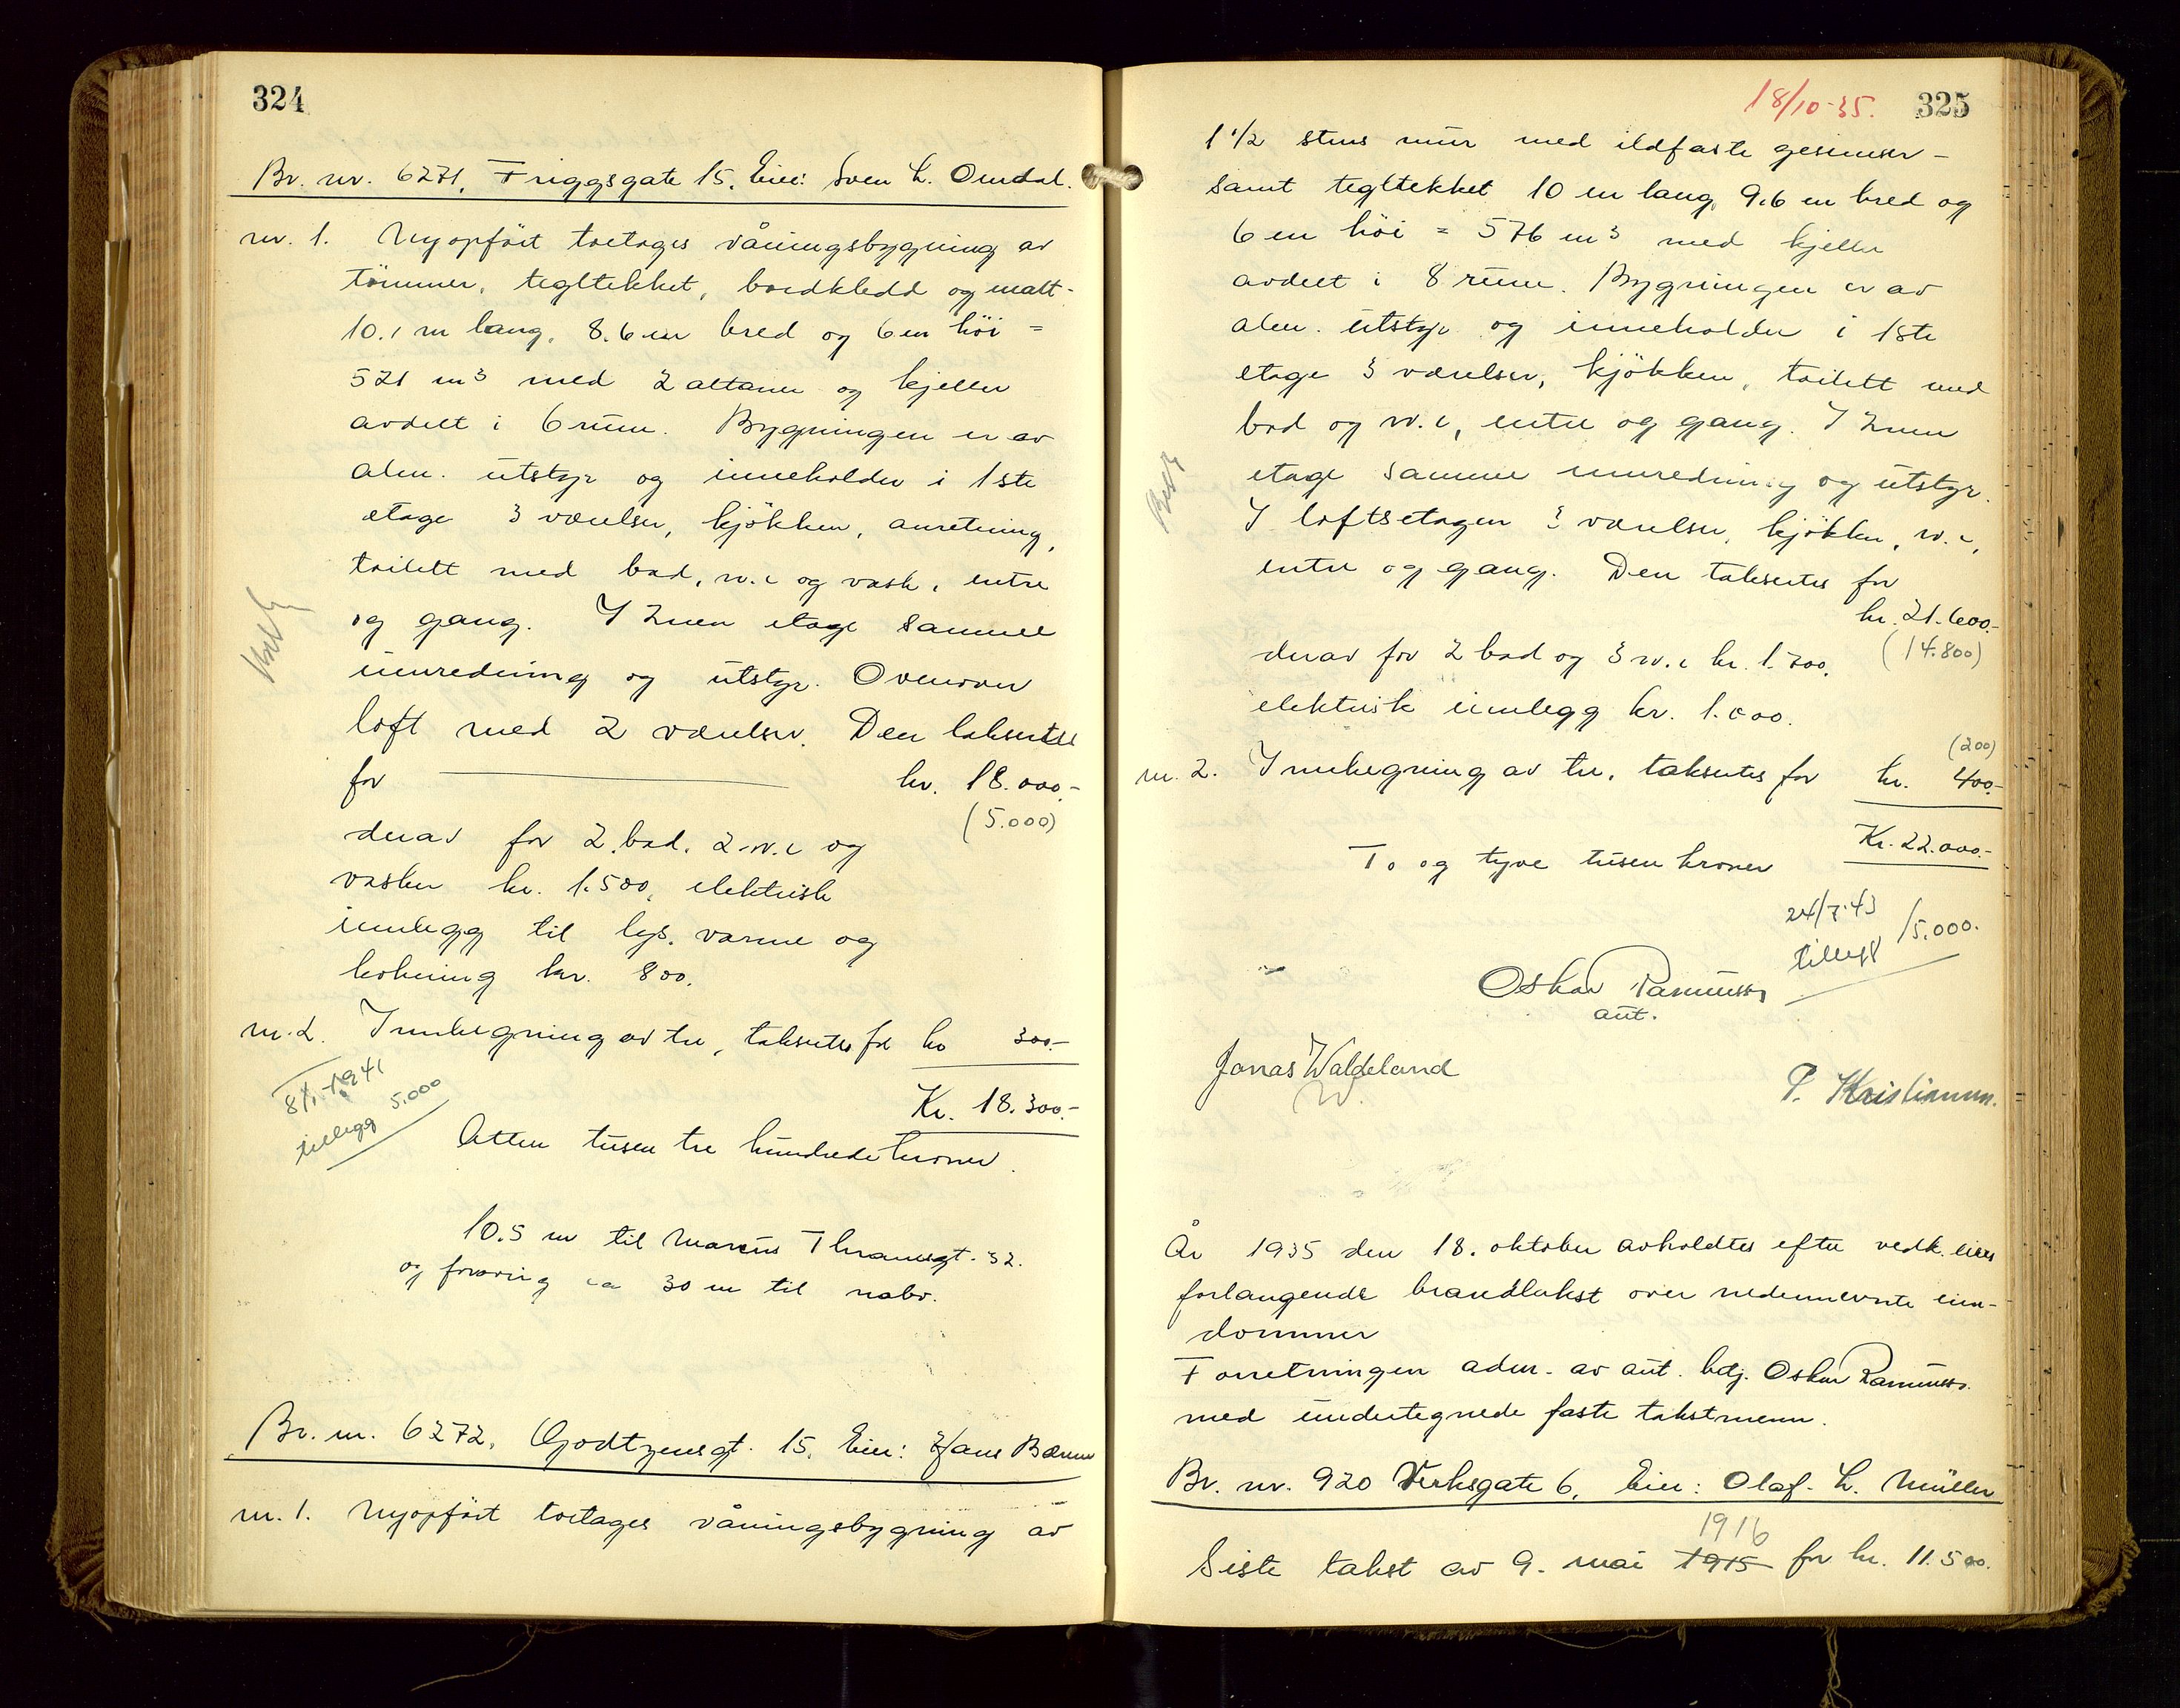 324
Br. nr. 6271, Friggsgate 15. Eier: Sven L. Omdal.
nr. 1. Nyopført toetages våningsbygning av
tömmer, tegltekket, bordkledd og malt -
10.1 m lang, 8.6 m bred og 6 m höi =
521 m3 med 2 altaner og kjeller
avdelt i 6 rum. Bygningen er av
alm. utstyr og inneholder i 1ste
etage 3 værelser, kjökken, anretning,
toilett med bad, w.c og vask, entre
og gang. I 2nen etage samme
innredning og utstyr. Ovenover
loft med 2 værelser. Den takseres
for kr. 18.000.-
(5.000)
derav for 2 bad. 2 w.c og
vasker kr. 1.500, elektrisk
innlegg til lys, varme og
kokning kr. 800.
nr. 2. Innhegning av tre, takseres for kr 300.-
8/1-1941
tillegg 5.000
Kr. 18.300.-
Atten tusen tre hundrede kroner.
10.5 m til Marcus Thranesgt. 32.
og forøvrig ca 30 m til nabo.
Br. nr. 6272, Godtzensgt. 15. Eier: Hans Bærum
nr. 1. Nyopfört toetages våningsbygning av
18/10-35. 325
1 1/2 stens mur med ildfaste gesimser -
samt tegltekket 10 m lang, 9.6 m bred og
6 m höi = 576 m3 med kjeller
avdelt i 8 rum. Bygningen er av
alm. utstyr og inneholder i 1ste
etage 3 værelser, kjökken, toilett med
bad og w.c, entre og gang. I 2nen
etage samme innredning og utstyr.
I loftsetagen 3 værelser, kjökken, w.c,
entre og gang. Den takseres for
kr. 21.600.-
(14.800)
derav for 2 bad og 3 w.c kr. 1.700.
elektrisk innlegg kr. 1.000.
(200)
nr. 2. Innhegning av tre, takseres for kr. 400.-
Kr. 22.000.-
To og tyve tusen kroner
24/7-43
tillegg 15.000.
Oskar Rasmussen
aut.
Jonas Waldeland
W.
P. Kristiansen.
År 1935 den 18. oktober avholdtes efter vedk. eiers
forlangende brandtakst over nedennevnte eien-
dommer
Forretningen adm. av aut. betj. Oskar Rasmussen
med undertegnede faste takstmenn.
Br. nr. 920 Verksgate 6, Eier: Olaf L. Müller
1916
Siste takst av 9. mai 1915 for kr. 11.500.